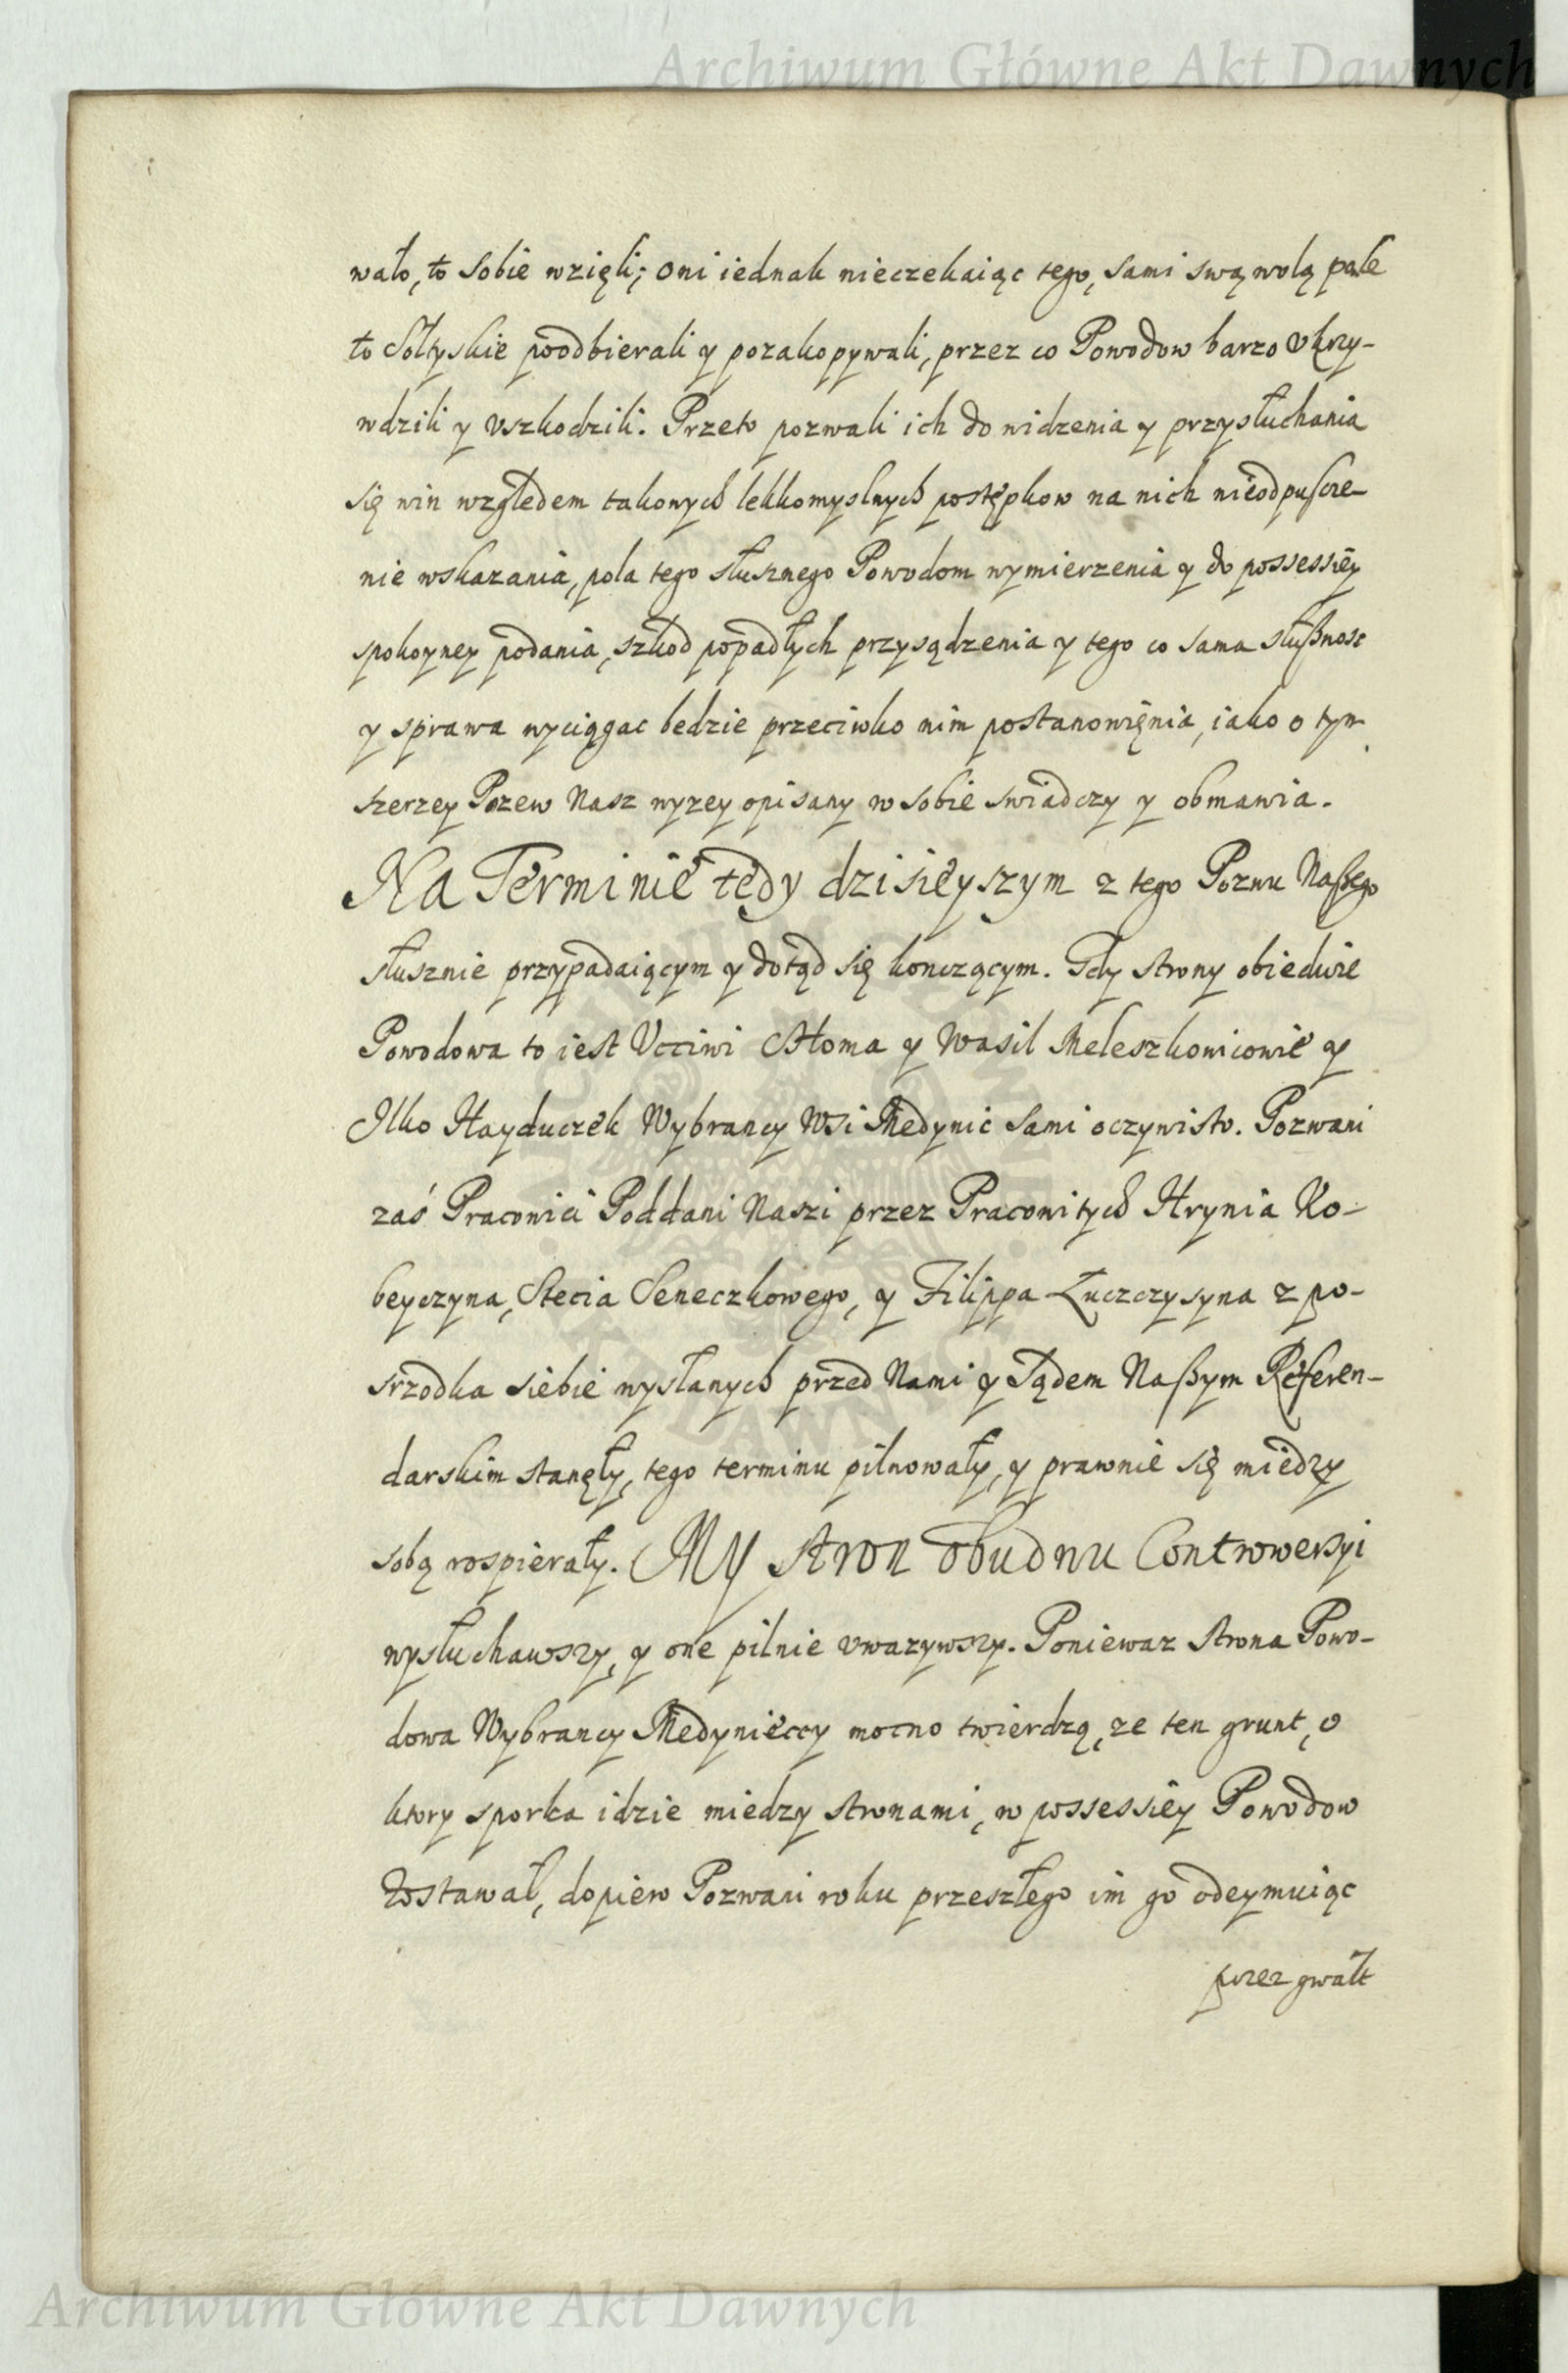 Archiwum Główne Akt Dawnych
wało, to sobie wzięli; oni iednak nieczekaiąc tego, sami swą wolą pole
to Sołtyskie poodbierali y pozakopywali, przez co Powodow barzo vkrzy-
wdzili y vszkodzili. Przeto pozwali ich do widzenia y przysłuchania
się win względem takowych lekkomyslnych postępkow na nich nieodpuscze-
nie wskazania, pola tego słusznego Powodom wymierzenia y do possessiey
spokoyney podania, szkod popadłych przysądzenia y tego co sama słußnosc
y sprawa wyciągac bedzie przeciwko nim postanowięnia, iako o tym
szerzey Pozew Nasz wyzey opisany w sobie swiadczy y obmawia.
Na Terminie tedy dzisieyszym z tego Pozwu Naßego
słusznie przypadaiącym y dotąd się konczącym. Gdy strony obiedwie
Powodowa to iest Vcciwi Choma y Wasil Meleszkowicowie y
Ilko Hayduczek Wybrancy Wsi Medynic sami oczywisto. Pozwani
zaś Pracowici Poddani Naszi przez Pracowitych Hrynia Ko-
beyczyna, Stecia Seneczkowego, y Filippa Łuczczysyna z po-
srzodka siebie wysłanych przed Nami y Sądem Naßym Referen-
darskim stanęły, tego terminu pilnowały, y prawnie się miedzy
sobą rospierały. My stron obudwu Controwersyi
wysłuchawszy, y one pilnie vwazywszy. Poniewaz strona Powo-
dowa Wybrancy Medynieccy mocno twierdzą, ze ten grunt, o
ktory sporka idzie miedzy stronami, w possessiey Powodow
zostawał, dopiero Pozwani roku przeszłego im go odeymuiąc
przez gwałt
Archiwum Główne Akt Dawnych